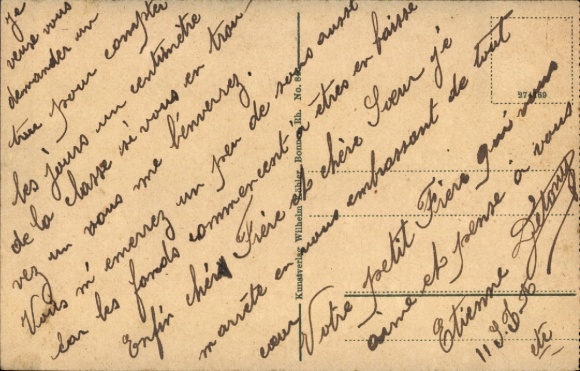 je
veux vous
demander un
truc pour compter
les jours un centimètre
de la classe si vous en trou-
vez un vous me l'enverrez.
Vous m'emerrez un peu de sous aussi
car les fonds commencent à êtres en baisse
Enfin chère Frère et chère Sœur je
m'arrête en vous embrassant de tout
cœur
Votre petit Frère qui vous
aime et pense à vous
Etienne Détouy
etc
Kunstverlag Wilhelm Köhler, Bonn a. Rh. No.